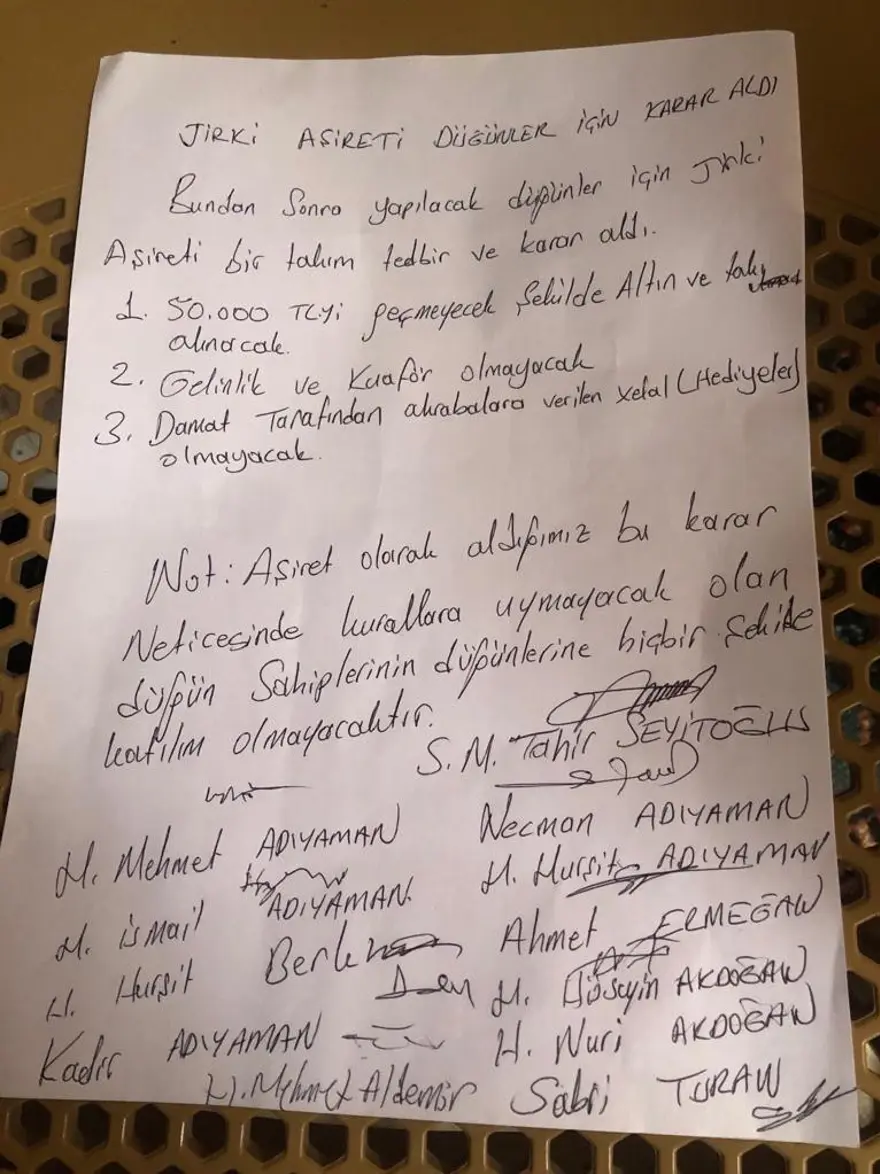 JİRKİ AŞİRETİ DÜĞÜNLER İÇİN KARAR ALDI
Bundan Sonra yapılacak düğünler için Jirki
Aşireti bir takım tedbir ve karar aldı.
1. 50.000 TL'yi geçmeyecek Şekilde Altın ve takı
alınacak.
2. Gelinlik ve Kuaför olmayacak
3. Damat Tarafından akrabalara verilen xelat (Hediyeler)
olmayacak.
Not: Aşiret olarak aldığımız bu karar
Neticesinde kurallara uymayacak olan
düğün Sahiplerinin düğünlerine hiçbir Şekilde
katılım olmayacaktır.
S. M. Tahir SEYİTOĞLU
H. Mehmet ADIYAMAN Necman ADIYAMAN
H. İsmail ADIYAMAN H. Hurşit ADIYAMAN
H. Hurşit Ahmet ERMEĞAN
H. Hüseyin AKDOĞAN
Kadir ADIYAMAN H. Nuri AKDOĞAN
H. Mehmet Aldemir Sabri TURAN